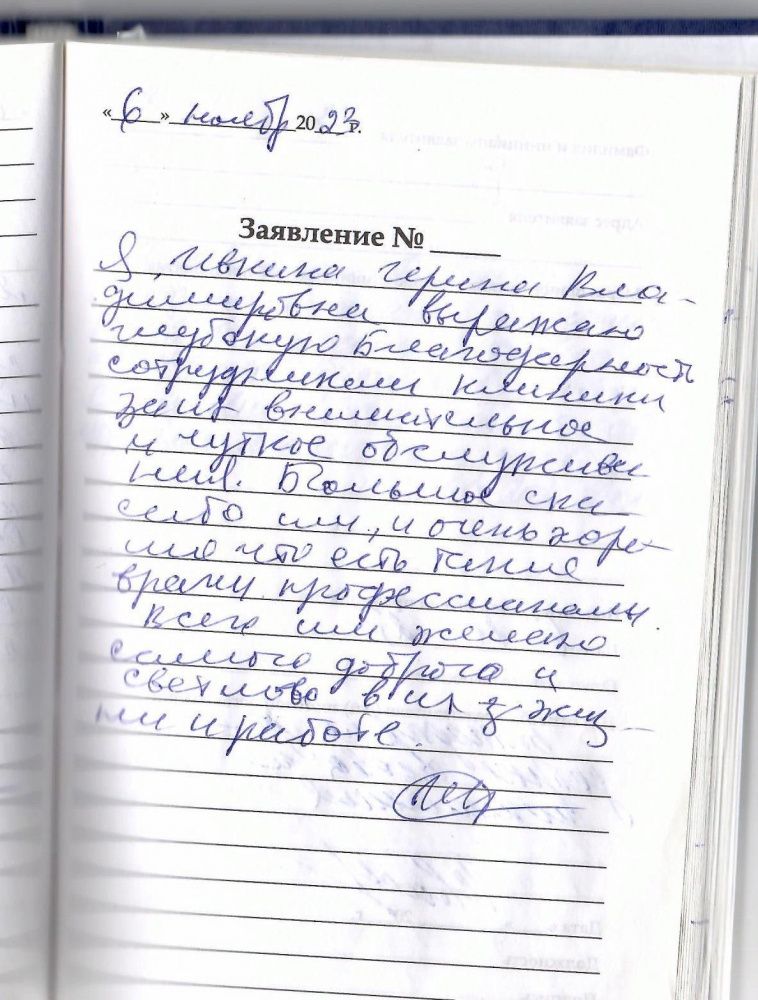 « 6 » ноябр 2023г.
Заявление № ____
Я, Ивкина Ирина Вла-
димировна выражаю
глубокую Благодарность
сотрудникам клиники
за их внимательное
и чуткое обслужива
ния. Большое спа
сибо им, и очень хоро-
шо что есть такие
врачи профессионалы.
Всего им желаю
самого доброго и
светлово в их жиз-
ни и работе.